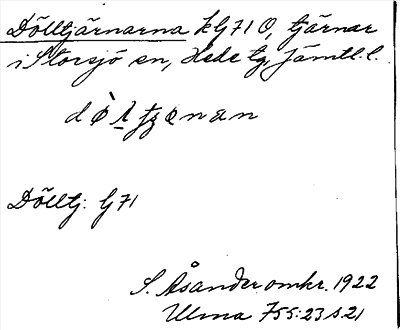 Dölltjärnarna k G71 O, tjärnar
i Storsjö sn, Hede tg, Jämtl. l.
Dölltj: G71
S. Åsander omkr. 1922
Ulma 755:23 s. 21